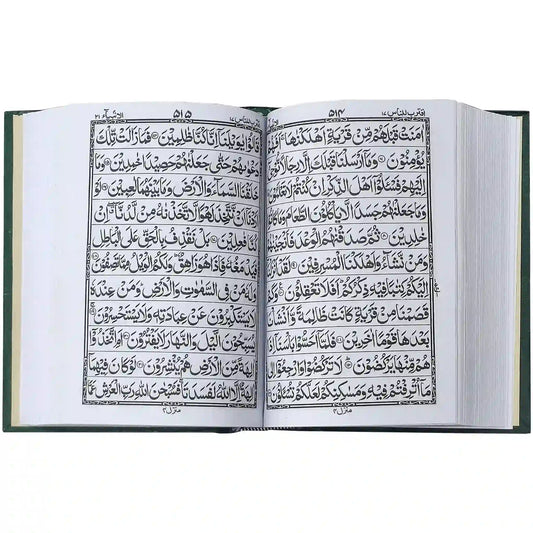 اقترب للناس ١٧ ٥١٤
اٰمَنَتْ قَبْلَهُمْ مِّنْ قَرْيَةٍ اَهْلَكْنٰهَا
يُؤْمِنُوْنَ وَمَاۤ اَرْسَلْنَا قَبْلَكَ اِلَّا رِجَالًا
اِلَيْهِمْ فَسْـَٔلُوْۤا اَهْلَ الذِّكْرِ اِنْ كُنْتُمْ لَا تَعْلَمُوْنَ
وَمَا جَعَلْنٰهُمْ جَسَدًا لَّا يَاْكُلُوْنَ الطَّعَامَ وَمَا
خٰلِدِيْنَ ثُمَّ صَدَقْنٰهُمُ الْوَعْدَ فَاَنْجَيْنٰهُمْ
وَمَنْ نَّشَآءُ وَاَهْلَكْنَا الْمُسْرِفِيْنَ لَقَدْ
اِلَيْكُمْ كِتٰبًا فِيْهِ ذِكْرُكُمْ اَفَلَا تَعْقِلُوْنَ
قَصَمْنَا مِنْ قَرْيَةٍ كَانَتْ ظَالِمَةً وَّاَنْشَاْنَا
بَعْدَهَا قَوْمًا اٰخَرِيْنَ فَلَمَّاۤ اَحَسُّوْا
هُمْ مِّنْهَا يَرْكُضُوْنَ لَا تَرْكُضُوْا وَارْجِعُوْۤا
مَاۤ اُتْرِفْتُمْ فِيْهِ وَمَسٰكِنِكُمْ لَعَلَّكُمْ تُسْـَٔلُوْنَ
منزل ٤
٥١٥ الانبيآء ٢١
قَالُوْا يٰوَيْلَنَاۤ اِنَّا كُنَّا ظٰلِمِيْنَ فَمَا زَالَتْ تِّلْكَ
دَعْوٰىهُمْ حَتّٰى جَعَلْنٰهُمْ حَصِيْدًا خٰمِدِيْنَ وَمَا
خَلَقْنَا السَّمَآءَ وَالْاَرْضَ وَمَا بَيْنَهُمَا لٰعِبِيْنَ لَوْ
اَرَدْنَاۤ اَنْ نَّتَّخِذَ لَهْوًا لَّاتَّخَذْنٰهُ مِنْ لَّدُنَّاۤ اِنْ
كُنَّا فٰعِلِيْنَ بَلْ نَقْذِفُ بِالْحَقِّ عَلَى الْبَاطِلِ
فَيَدْمَغُهٗ فَاِذَا هُوَ زَاهِقٌ وَلَكُمُ الْوَيْلُ مِمَّا تَصِفُوْنَ
وَلَهٗ مَنْ فِى السَّمٰوٰتِ وَالْاَرْضِ وَمَنْ عِنْدَهٗ
لَا يَسْتَكْبِرُوْنَ عَنْ عِبَادَتِهٖ وَلَا يَسْتَحْسِرُوْنَ
يُسَبِّحُوْنَ الَّيْلَ وَالنَّهَارَ لَا يَفْتُرُوْنَ اَمِ اتَّخَذُوْۤا
اٰلِهَةً مِّنَ الْاَرْضِ هُمْ يُنْشِرُوْنَ لَوْ كَانَ فِيْهِمَاۤ
اٰلِهَةٌ اِلَّا اللّٰهُ لَفَسَدَتَا فَسُبْحٰنَ اللّٰهِ رَبِّ الْعَرْشِ عَمَّا
منزل ٤